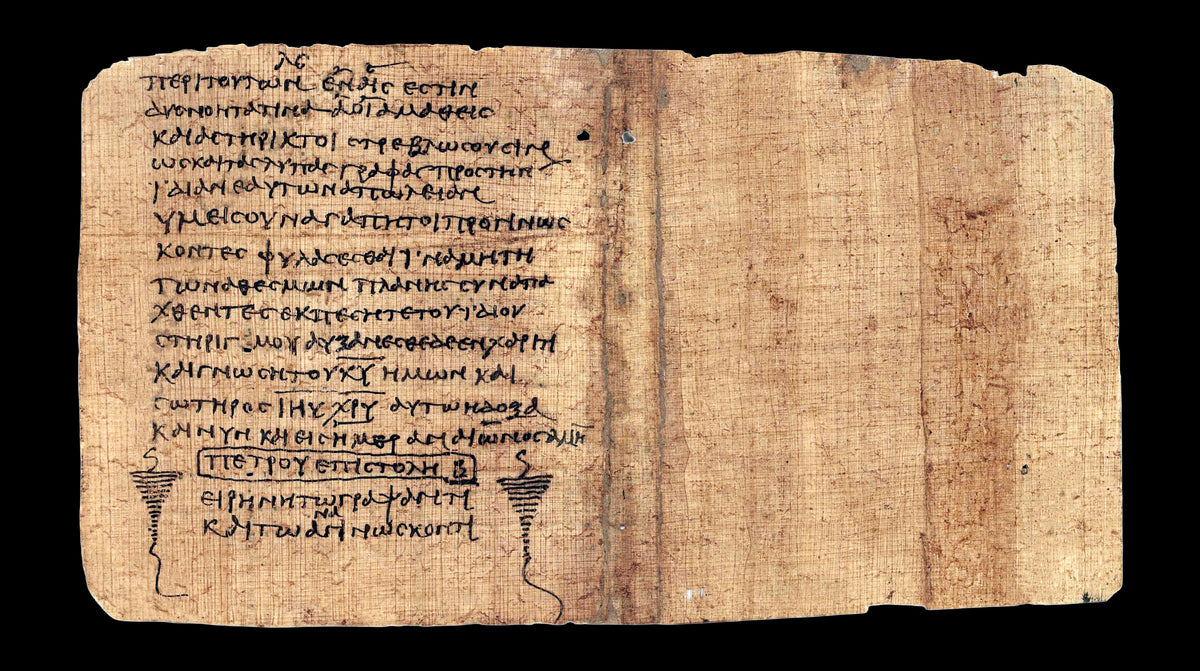 ΛϚ
ΠΕΡΙΤΟΥΤΩΝ ΕΝΑΙϹ ΕϹΤΙΝ
ΔΥΟΝΟΗΤΑΤΙΝΑ ΑΟΙΑΜΑΘΕΙϹ
ΚΑΙΑϹΤΗΡΙΚΤΟΙ ϹΤΡΕΒΛΩϹΟΥϹΙΝ
ΩϹΚΑΙΤΑϹΛΥΠΑϹΓΡΑΦΑϹΠΡΟϹΤΗΝ
ΪΔΙΑΝΕΑΥΤΩΝΑΠΩΛΕΙΑΝ
ΥΜΕΙϹΟΥΝΑΓΑΠΗΤΟΙΠΡΟΓΙΝΩϹ
ΚΟΝΤΕϹ ΦΥΛΑϹΕϹΘΑΙ ΪΝΑΜΗΤΗ
ΤΩΝΑΘΕϹΜΩΝ ΠΛΑΝΗϹΥΝΑΠΑ
ΧΘΕΝΤΕϹΕΚΠΕϹΗΤΕΤΟΥΪΔΙΟΥ
ϹΤΗΡΙΓΜΟΥΑΥΞΑΝΕϹΘΕΔΕΕΝΧΑΡΙΤΙ
ΚΑΙΓΝΩϹΗΤΟΥΚ̅Υ̅ ΗΜΩΝ ΚΑΙ
ϹΩΤΗΡΟϹ Ι̅Η̅Υ̅ Χ̅Ρ̅Υ̅ ΑΥΤΩΗΔΟΞΑ
ΚΑΙΝΥΝ ΚΑΙΕΙϹΗΜΕΡΑΝΑΙΩΝΟϹΑΜΗ̅
ΠΕΤΡΟΥΕΠΙϹΤΟΛΗ Β̅
ΕΙΡΗΝΗΤΩΓΡΑΨΑΝΤΙ
ΚΑΙΤΩΑΝΑΓΙΝΩϹΚΟΝΤΙ